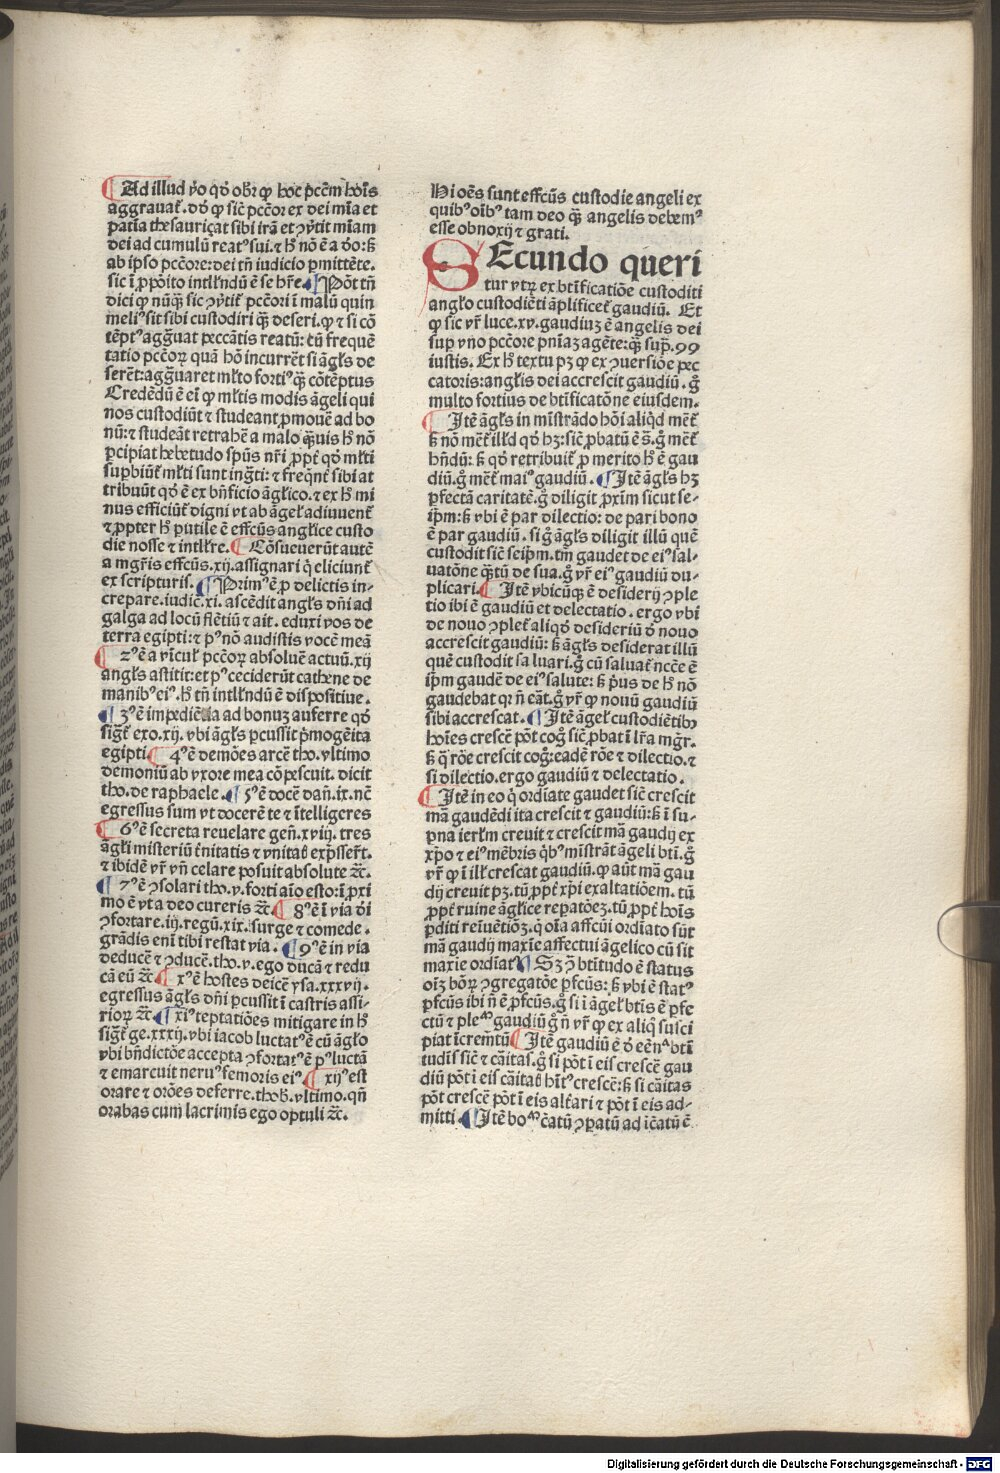 ¶ Ad illud v̾o qd̾ obr̄ꝙ hoc pctm̄ hoīs
aggrauat̄. dd̾ ꝙ sic̄ pctōr ex dei mīa et
patiā thesauriçat sibi irā et ꝯv̄tit mīam
dei ad cumulū reatꝰ sui. ⁊ h̄ nō ē a d̾o: ß
ab ipso pctōre: dei tn̄ iudicio ꝑmittēte.
sic ī ꝓpōito intllṅdū ē se hr̄e. ¶ Pōt tn̄
dici ꝙ nūꝗ sic ꝯv̄tit̄ pctōri ī malū quin
meliꝰ sit sibi custodiri ꝗ̄ deseri. ꝙ ⁊ si cō
tēptꝰ aggrauat peccātis reatū: tn̄ frequē
tatio pctōꝝ quā hō incurrēt si āgls̄ de
serēt: aggrauaret ml̄to fortiꝰ ꝗ̄ cōtēptus
Credēdū ē eī ꝙ ml̄tis modis āgeli qui
nos custodiūt ⁊ studeant ꝓmouē ad bo
nū: ⁊ studeāt retrahē a malo ꝗ̄uis h̄ nō
ꝑcipiat hebetudo spūs nr̄i ꝓpt̄ qd̾ ml̄ti
suꝑbiūt ml̄ti sunt ingr̄ti: ⁊ freqn̄t sibi at
tribuūt qd̾ ē ex bn̄ficio āglico. ⁊ ex h̄ mi
nus efficiūt̄ digni vt ab āgel̄ adiuuent̄
⁊ ꝓpter h̄ ꝑutile ē effcūs anglice custo
die nosse ⁊ intllr̄e. ¶ Cōsueuerūt autē
a mgr̄is effcūs. xij. assignari q̄ eliciunt̄
ex scripturis. ¶ Primꝰ ē ꝓ delictis in-
crepare. iudic̄. xi. ascēdit angl̄s dn̄i ad
galga ad locū flētiū ⁊ ait. eduxi vos de
terra egipti: ⁊ pꝰ nō audistis vocē meā
¶ 2ꝰ ē a vīcul̄ pctōꝝ absoluē actuū. xij
angl̄s astitit: et pꝰ ceciderūt cathene de
manibꝰ eiꝰ. h̄ tn̄ intllṅdū ē dispositiue.
¶ 3ꝰ ē impedim̄ta ad bonuꝫ auferre qd̾
sigt̄ exo. xij. vbi āgl̄s ꝑcussit p̄mogēita
egipti. ¶ 4ꝰ ē demōes arcē tho. vltimo
demoniū ab vxore mea cōpescuit. dicit
tho. de raphaele. ¶ 5ꝰ ē docē dañ. ix. nc̄
egressus sum vt docerē te ⁊ ītelligeres
¶ 6ꝰ ē secreta reuelare geñ. xviij. tres
āgli misteriū t̄nitatis ⁊ vnitatꝭ exp̄sser̄t.
⁊ ibidē vr̄ vn̄ celare posuit absolute ⁊c̄.
¶ 7ꝰ ē ꝯsolari tho. v. forti aīo esto: ī ꝓxi
mo ē vt a deo cureris ⁊c̄. ¶ 8ꝰ ē ī via d̾i
ꝯfortare. iij. regū. xix. surge ⁊ comede.
grādis enī tibi restat via. ¶ 9ꝰ ē in via
deducē ⁊ ꝯducē. tho. v. ego ducā ⁊ redu
cā eū ⁊c̄. ¶ xꝰ ē hostes deicē ysa. xxxvij.
egressus āgl̄s dn̄i ꝑcussit ī castris assi-
rioꝝ ⁊c̄. ¶ xiꝰ teptatiōes mitigare in h̄
sigt̄ ge. xxxij. vbi iacob luctatꝰ ē cū āglo
vbi bn̄dictōe accepta ꝯfortatꝰ ē pꝰ luctā
⁊ emarcuit neruꝰ femoris eiꝰ. ¶ xijꝰ est
orare ⁊ orōes deferre. thob. vltimo. qn̄
orabas cum lacrimis ego optuli ⁊c̄.
Hi oēs sunt effcūs custodie angeli ex
quibꝰ oībꝰ tam deo ꝗ̄ angelis debemꝰ
esse obnoxij ⁊ grati.
SEcundo queri
tur vtꝝ ex btīficatiōe custoditi
anglo custodiēti āplificet̄ gaudiū. Et
ꝙ sic vr̄ luce. xv. gaudiuꝫ ē angelis dei
suꝑ vno pctōre pn̄iaꝫ agēte: ꝗ̄ suꝑ. 99
iustis. Ex h̄ textu pꝫ ꝙ ex ꝯuersiōe pec
catoris: angl̄is dei accrescit gaudiū. g̊
multo fortius de btīficatōne eiusdem.
¶ Itē āgl̄s in mīstrādo hōi aliqd̾ mēt̄
ß nō mēt̄ illd̾ qd̾ hꝫ: sic̄ ꝓbatū ē s̄. g̊ mēt̄
hn̄dū: ß qd̾ retribuit̄ ꝓ merito h̄ ē gau
diū. g̊ mēt̄ maiꝰ gaudiū. ¶ Itē āgl̄s hꝫ
ꝑfectā caritatē. g̊ diligit ꝓxim̄ sicut se-
ip̄m: ß vbi ē par dilectio: de pari bono
ē par gaudiū. si g̊ āgl̄s diligit illū quē
custodit sic̄ seip̄m. tm̄ gaudet de eiꝰ sal-
uatōne ꝗ̄tū de sua. g̊ vr̄ eiꝰ gaudiū du-
plicari. ¶ Itē vbicūꝗ ē desiderij ꝯple
tio ibi ē gaudiū et delectatio. ergo vbi
de nouo ꝯplet̄ aliqd̾ desideriū d̾ nouo
accrescit gaudiū: ß āgl̄s desiderat illū
quē custodit saluari. g̊ cū saluat̄ nccē ē
ip̄m gaudē de eiꝰ salute: ß pͥus de h̄ nō
gaudebat qr̄ n̄ eāt. g̊ vr̄ ꝙ nouū gaudiū
sibi accrescat. ¶ Itē āgel̄ custodiētibꝰ
hoīes crescē pōt cog̾ sic̄ ꝓbat̄ ī lr̄a mg̾r.
ß q̄ rōe crescit cog̾: eadē rōe ⁊ dilectio. ⁊
si dilectio. ergo gaudiū ⁊ delectatio.
¶ Itē in eo q̾ ordīate gaudet sic̄ crescit
mā gaudēdi ita crescit ⁊ gaudiū: ß ī su-
ꝑna ierl̄m creuit ⁊ crescit mā gaudij ex
xp̄o ⁊ eiꝰ mēbris qͥbꝰ mīstrāt āgeli btī. g̊
vr̄ ꝙ ī ill̄ crescat gaudiū. ꝙ aūt mā gau
dij creuit pꝫ. tū ꝓpt̄ xp̄i exaltatiōem. tū
ꝓpt̄ ruine āglice reꝑatōeꝫ. tū ꝓpt̄ hoīs
ꝑditi reīuētiōꝫ. q̄ oīa affcūi ordīato sūt
mā gaudij maxīe affectui āgelico cū sit
maxīe ordīatꝰ ¶ Sꝫ ꝯ̄ btītudo ē status
oīꝫ boṅꝝ ꝯgregatōe ꝑfcūs: ß vbi ē statꝰ
ꝑfcūs ibi n̄ ē ꝓfcūs. g̊ si ī āgel̄ btīs ē ꝑfe
ctū ⁊ plenū gaudiū g̊ n̄ vr̄ ꝙ ex aliꝗ̾ susci
piat īcremtū ¶ Itē gaudiū ē d̾ eēn̄ᵃ btī
tudīs sic̄ ⁊ cāitas. g̊ si pōt ī eis crescē gau
diū pōt ī eis cāitaꝭ hn̄tꝰ crescē: ß si cāitas
pōt crescē pōt ī eis alt̄ari ⁊ pōt ī eis ad-
mitti. ¶ Itē boꝰ c̄atū ꝯꝑatū ad īc̄atū ē
Digitalisierung gefördert durch die Deutsche Forschungsgemeinschaft - DFG